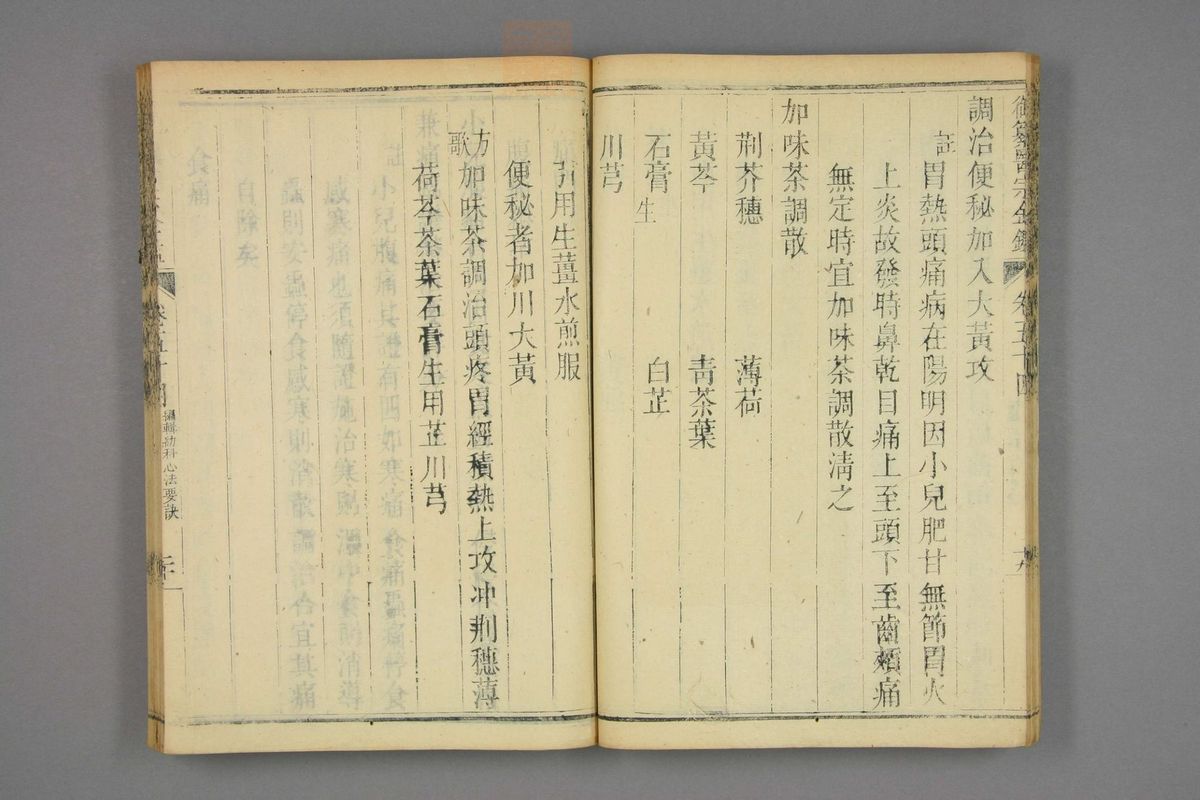 御纂醫宗金鑑 卷五十四
調治便秘加入大黃攻
註 胃熱頭痛病在陽明因小兒肥甘無節胃火
上炎故發時鼻乾目痛上至頭下至齒頰痛
無定時宜加味茶調散清之
加味茶調散
荆芥穗 薄荷
黃芩 青茶葉
石膏生 白芷
川芎
引用生薑水煎服
便秘者加川大黃
方歌 加味茶調治頭疼胃經積熱上攻冲荆穗薄
荷芩茶葉石膏生用芷川芎
卷五十四 編輯幼科心法要訣